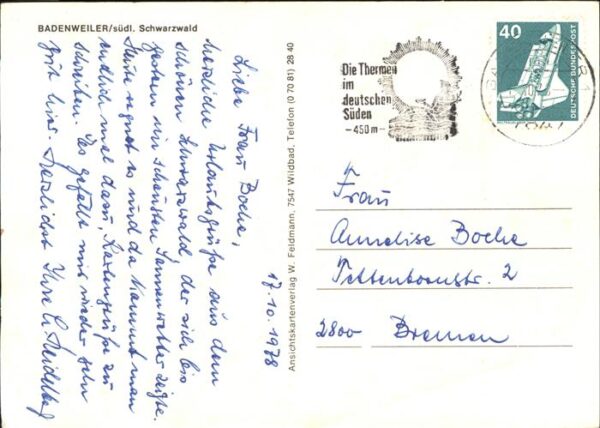 BADENWEILER/südl. Schwarzwald
17.10.1978
Liebe Frau Boche,
herzliche Urlaubsgrüße aus dem
schönen Schwarzwald, der sich bis
gestern im schönsten Sonnenwetter zeigte.
Heute regnet es und da kommt man
endlich mal dazu, Kartengrüße zu
schreiben. Es gefällt mir wieder sehr
gut hier. Herzlichst Ihre
Ansichtskartenverlag W. Feldmann, 7547 Wildbad, Telefon (0 70 81) 28 40
Die Thermen
im
deutschen
Süden
- 450 m -
40
DEUTSCHE BUNDESPOST
Frau
Annelise Boche
2
2800 Bremen